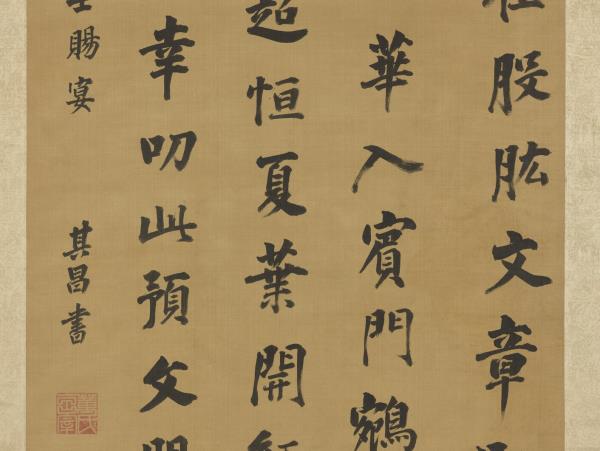 股肱文章
華入賓門鵷
超恒夏葉開
幸叨此預文明
賜宴
其昌書